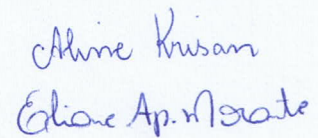 Aline Krisan
Eliane Ap. Morante